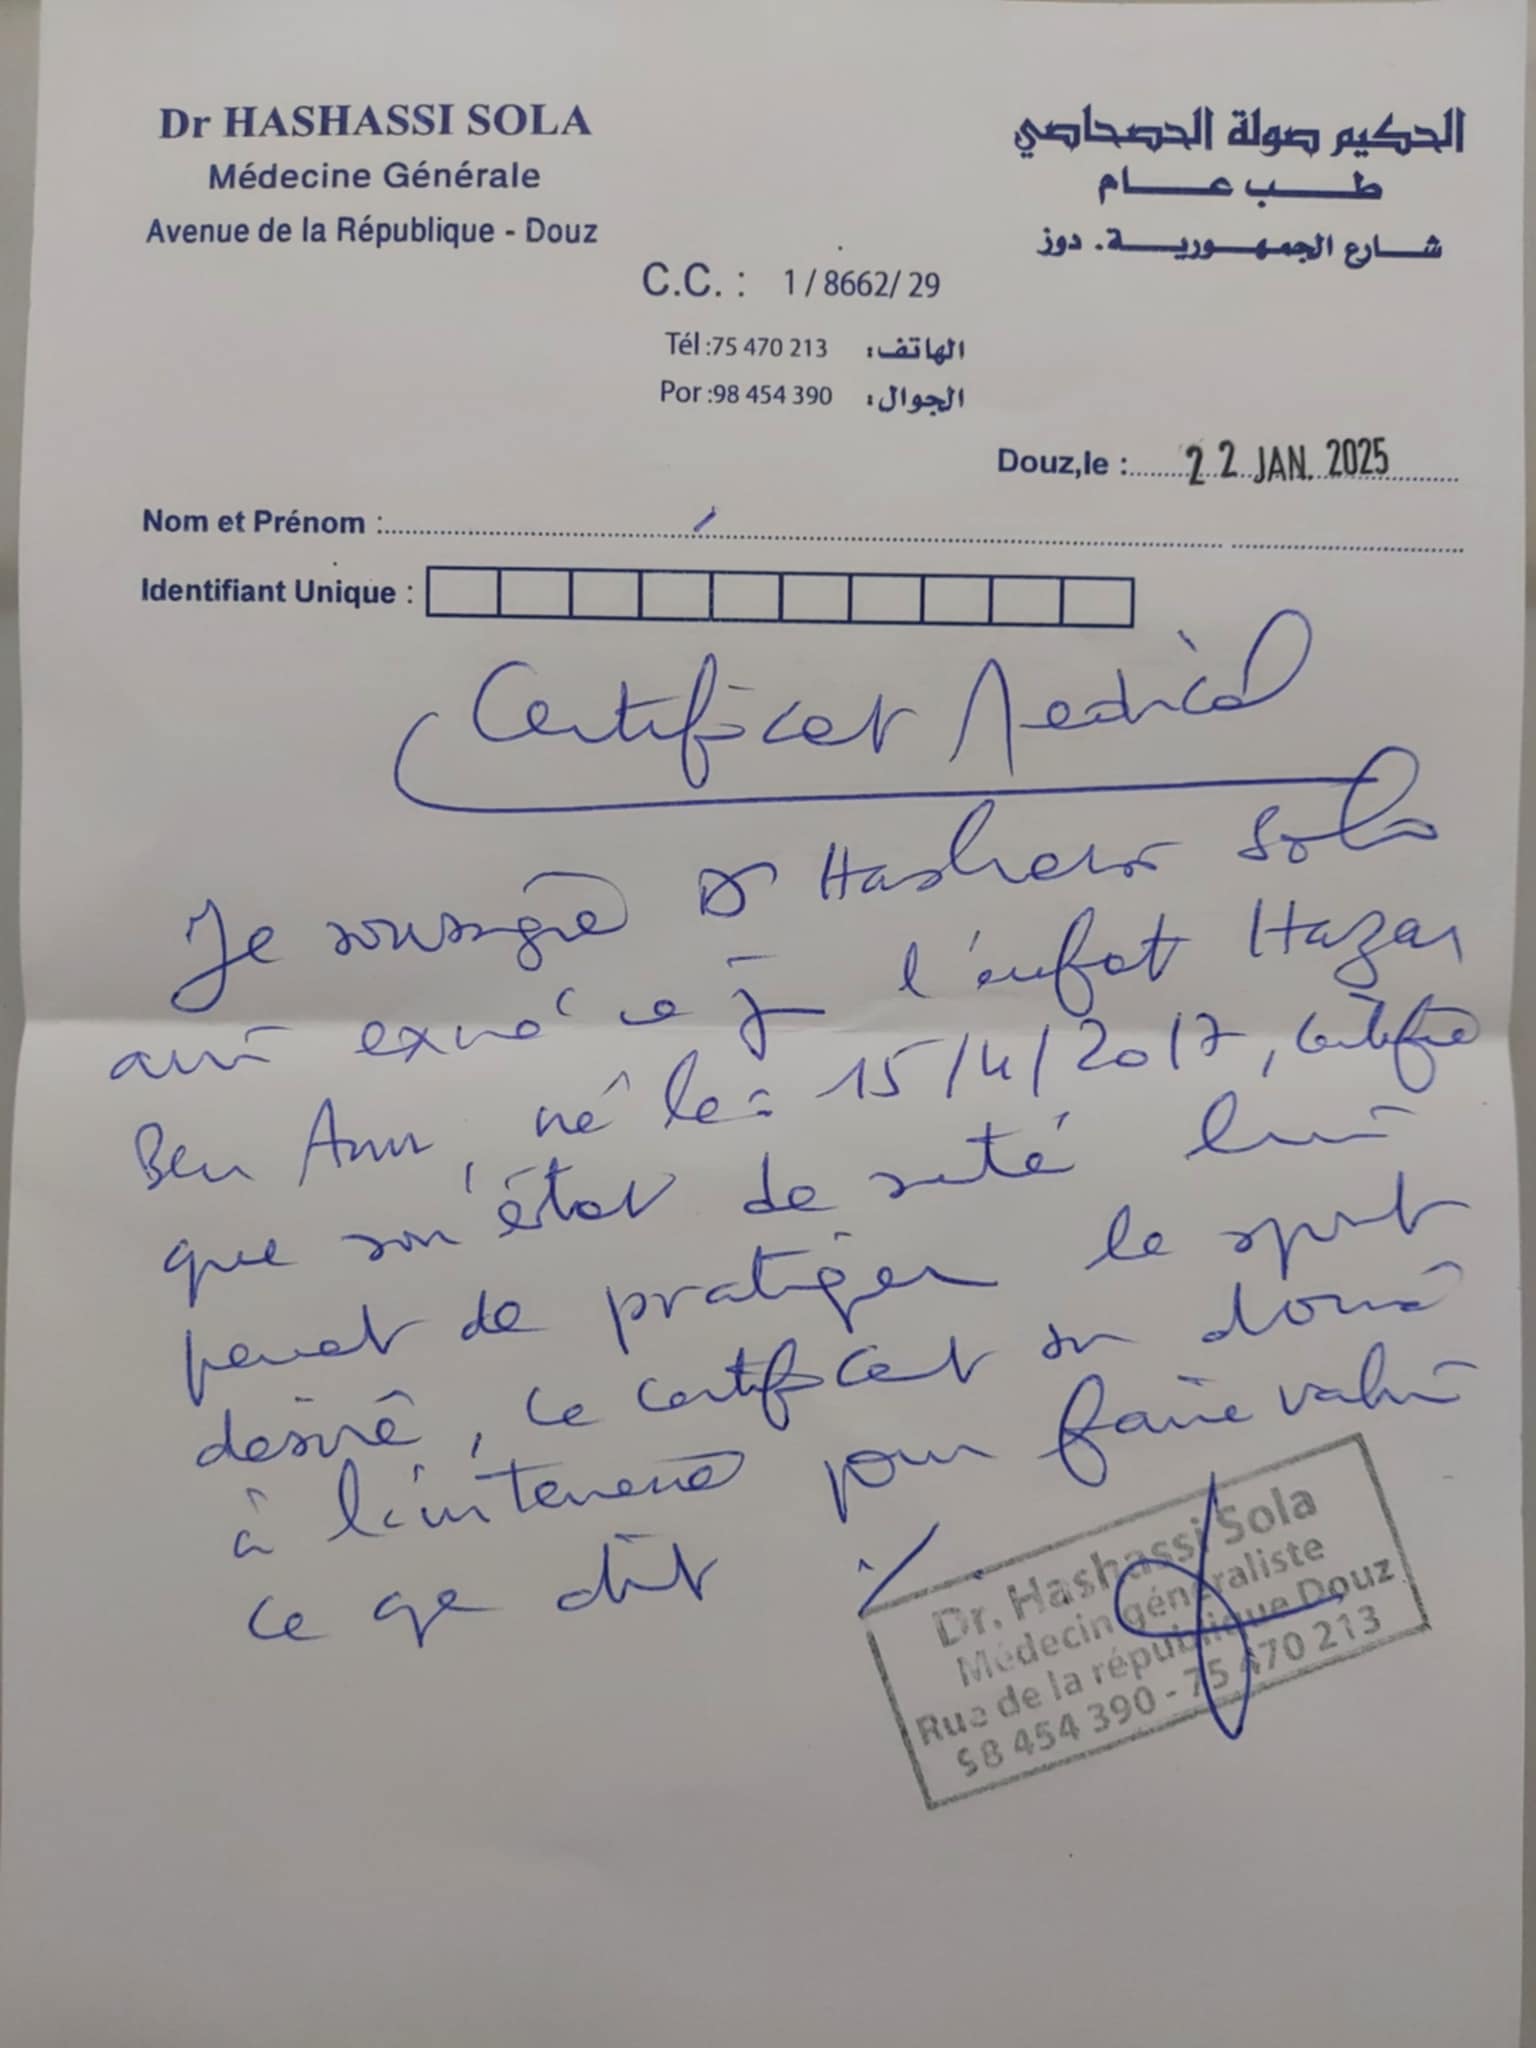 Dr HASHASSI SOLA
Médecine Générale
Avenue de la République - Douz
الحكيم صولة الحصحاصي
طب عام
شارع الجمهورية. دوز
C.C. : 1 / 8662/ 29
Tél :75 470 213 الهاتف:
Por :98 454 390 الجوال:
Douz,le : 22 JAN. 2025
Nom et Prénom :
Identifiant Unique :
Certificat Medical
Je soussigné Dr Hashassi Sola
ce j l'enfant Hazar
Ben Amr, né le : 15/4/2017, certifie
que son état de santé lui
permet de pratiquer le sport
désiré, ce certificat donné
à l'intéressé pour faire valoir
ce que dt
Dr. Hashassi Sola
Médecin généraliste
Rue de la république Douz
98 454 390 - 75 470 213